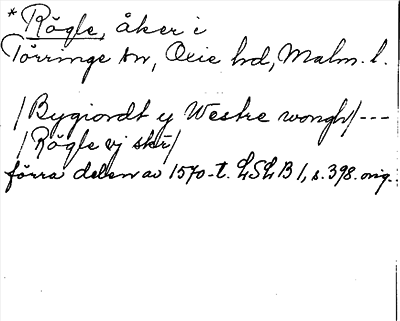 *Rögle, åker i
Törringe sn, Oxie hd, Malm. l.
/Bygiordt y Westre wongh/---
/Rögle vj skr/
förra delen av 1570-t. LSLB 1, s. 398. orig.